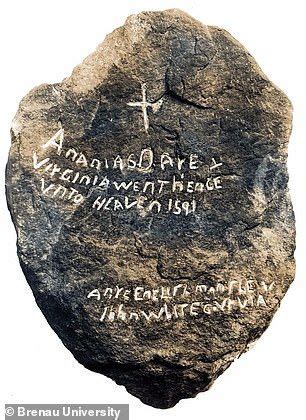 ANANIAS DARE &
VIRGINIA WENT HENCE
VNTO HEAVEN 1591
ANYE ENGLISHMAN SHEW
IOHN WHITE GOVR VIA
© Brenau University